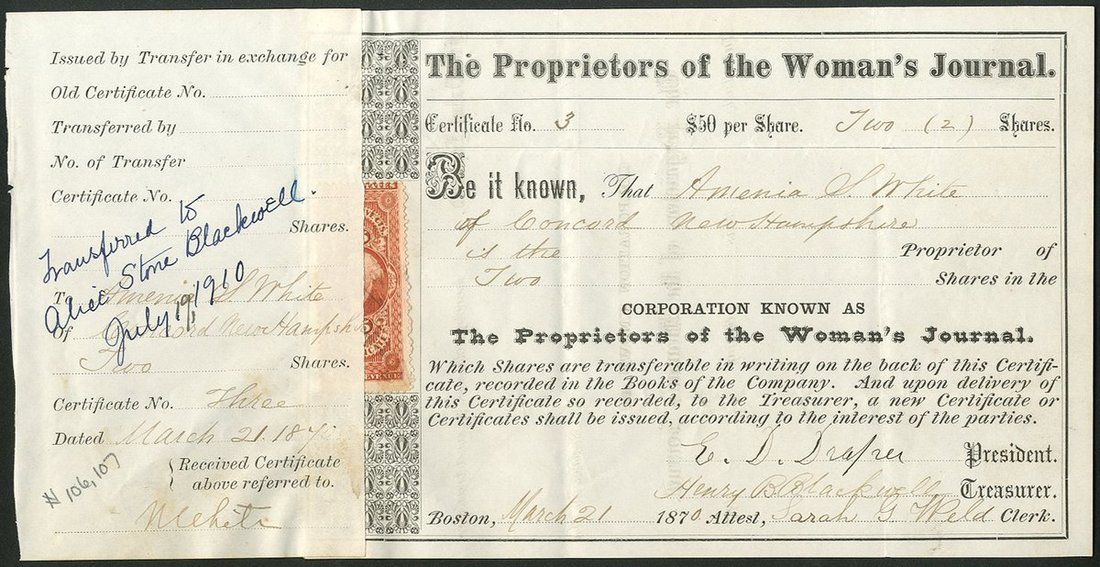 Issued by Transfer in exchange for
Old Certificate No.
Transferred by
No. of Transfer
Certificate No.
Shares.
Transferred to
Alice Stone Blackwell.
July 19, 1910
To Armenia S. White
Of Concord New Hampshire
Two
Shares.
Certificate No. Three
Dated March 21. 187
Received Certificate
above referred to.
N White
# 106,107
The Proprietors of the Woman's Journal.
Certificate No. 3 $50 per Share. Two (2) Shares.
Be it known, That Armenia S. White
of Concord New Hampshire
is the Proprietor of
Two Shares in the
CORPORATION KNOWN AS
The Proprietors of the Woman's Journal.
Which Shares are transferable in writing on the back of this Certifi-
cate, recorded in the Books of the Company. And upon delivery of
this Certificate so recorded, to the Treasurer, a new Certificate or
Certificates shall be issued, according to the interest of the parties.
E. D. Draper President.
Henry B Blackwell Treasurer.
Boston, March 21 1870 Attest, Sarah G Weld Clerk.